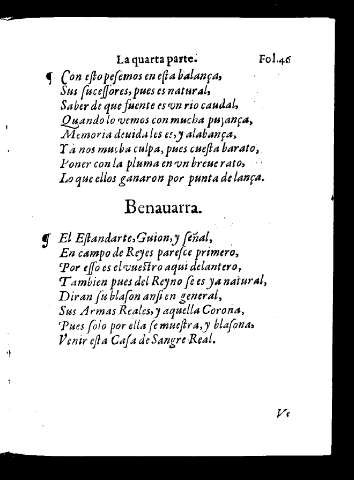 La quarta parte. Fol.46
¶ Con esto pesemos en esta balança,
Sus sucessores, pues es natural,
Saber de que fuente es vn rio caudal,
Quando lo vemos con mucha pujança,
Memoria deuida les es, y alabança,
Ya nos mucha culpa, pues cuesta barato,
Poner con la pluma en vn breue rato,
Lo que ellos ganaron por punta de lança.
Benauarra.
¶ El Estandarte, Guion, y señal,
En campo de Reyes paresce primero,
Por esso es el vuestro aqui delantero,
Tambien pues del Reyno se es ya natural,
Diran su blason ansi en general,
Sus Armas Reales, y aquella Corona,
Pues solo por ella se muestra, y blasona,
Venir esta Casa de Sangre Real.
Ve